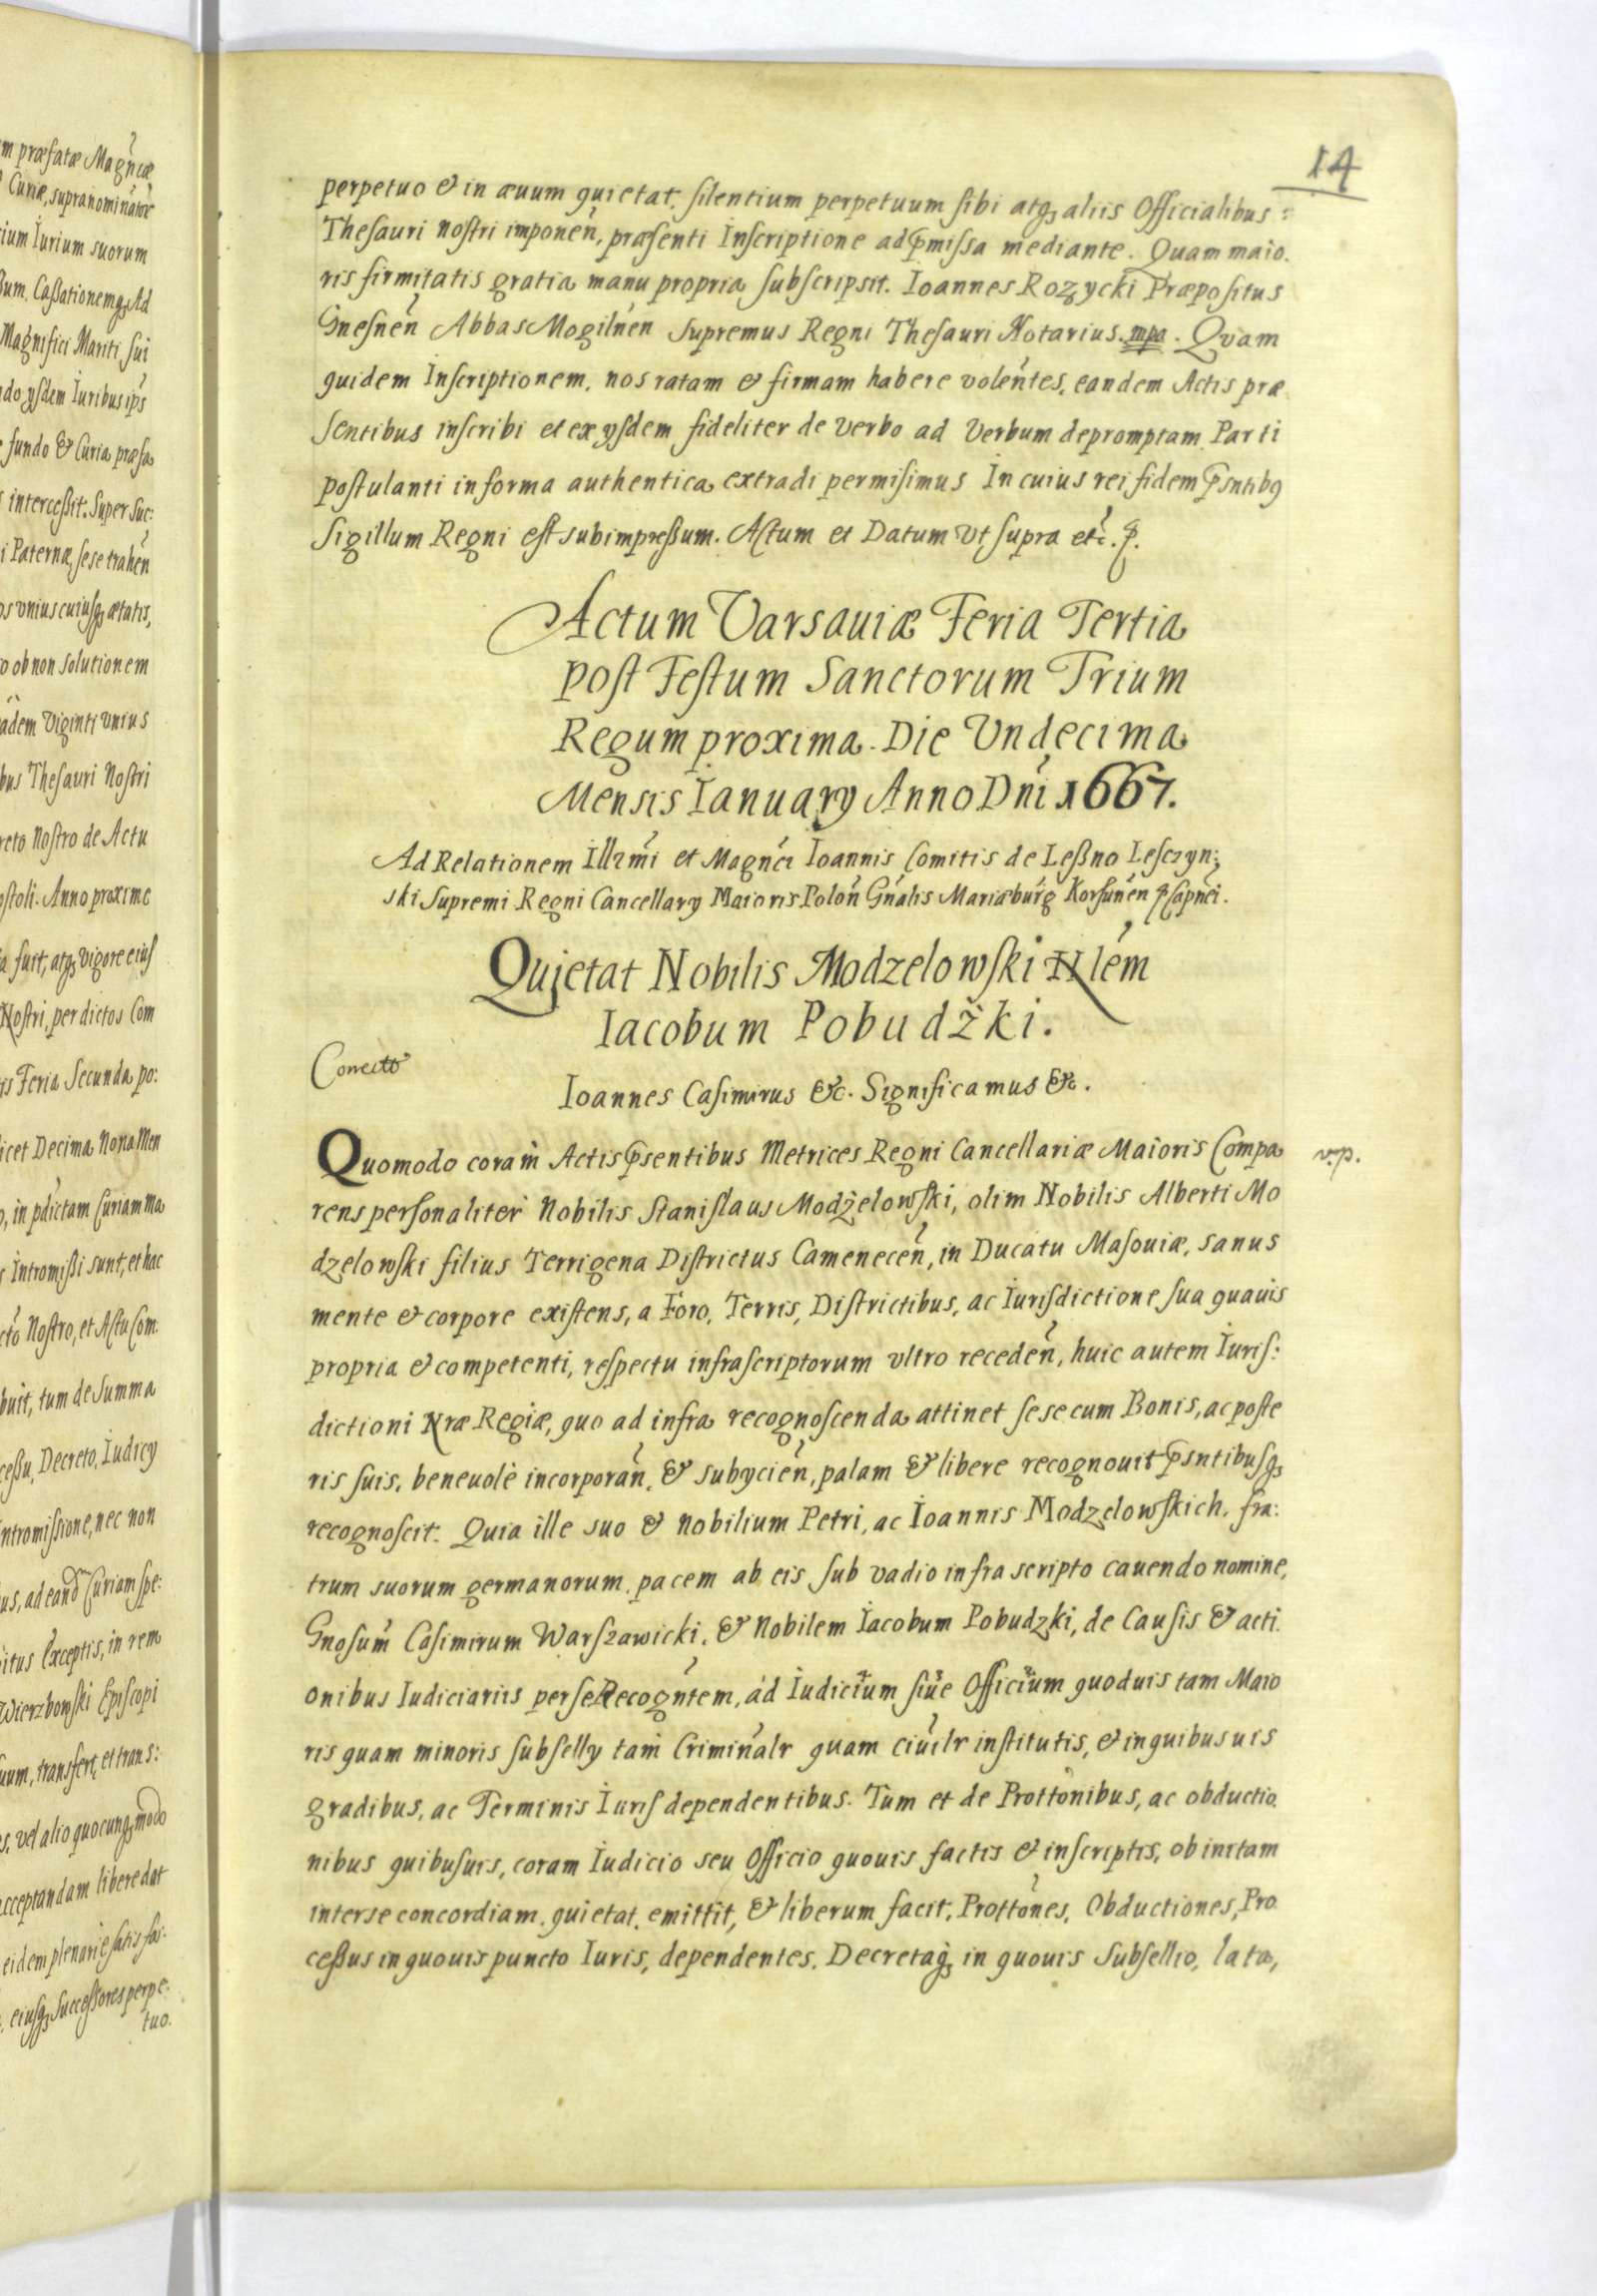 m præfatæ Magn̄cæ
Curiæ, supranominatæ
ium Iurium suorum
ßum, Caßationemq Ad
Magnifici Mariti sui
do ysdem Iuribus ips
fundo & Curia præfa
interceßit. Super Suc:
i Paternæ, sese trahen̄
os vnius cuiusq ætatis,
o ob non solutionem
adem Viginti vnius
bus Thesauri Nostri
reto Nostro de Actu
ostoli. Anno proxime
a fuit, atq vigore eius
Nostri, per dictos Com
is Feria Secunda po:
icet Decima Nona Men
o, in pdictam Curiam Ma
s Intromißi sunt, et hac
cto Nostro, et Actu Com:
buit, tum de Summa
ceßu, Decreto, Iudicy
ntromissione, nec non
us, ad eand Curiam spe:
itus Exceptis, in rem
Wierzbowski Episcopi
uum, transfert, et trans:
s, vel alio quocunq modo
acceptandam libere dat
eidem plenarie satis fa:
eiusq Successores perpe:
tuo.
14
perpetuo & in æuum quietat, silentium perpetuum sibi atq aliis Officialibus:
Thesauri nostri imponen̄, præsenti Inscriptione ad pmissa mediante. Quam maio.
ris firmitatis gratia manu propria subscripsit. Ioannes Rozycki Præpositus
Gnesnen̄ Abbas Mogilnen̄ Supremus Regni Thesauri Notarius. mpa. Quam
quidem Inscriptionem, nos ratam & firmam habere volentes, eandem Actis præ
sentibus inscribi et ex ysdem fideliter de verbo ad Verbum depromptam Parti
postulanti in forma authentica extradi permisimus In cuius rei fidem psntibq
Sigillum Regni est subimpreßum. Actum et Datum vt supra etc. p.
Actum Varsauiæ Feria Tertia
post Festum Sanctorum Trium
Regum proxima. Die Vndecima
Mensis Ianuary Anno Dn̄i 1667.
Ad Relationem Illr̄mi et Magn̄ci Ioannis Comitis de Leßno Lesczyn:
ski Supremi Regni Cancellary Maioris Polon̄ Gn̄alis Mariæburg Korsunen̄ p Capnei.
Quietat Nobilis Modzelowski Nlem
Iacobum Pobudżki.
Correcto
Ioannes Casimirus &c. Significamus &c.
Quomodo coram Actis psentibus Metrices Regni Cancellariæ Maioris Compa
rens personaliter Nobilis Stanislaus Modżelowski, olim Nobilis Alberti Mo
dzelowski filius Terrigena Districtus Camenecen̄, in Ducatu Masouiæ, sanus
mente & corpore existens, a Foro, Terris, Districtibus, ac Iurisdictione sua quauis
propria & competenti, respectu infrascriptorum vltro receden̄, huic autem Iuris:
dictioni Nræ Regiæ, quo ad infra recognoscenda attinet sese cum Bonis, ac poste
ris suis, beneuolè incorporan̄, & subycien̄, palam & libere recognouit psntibusq
recognoscit. Quia ille suo & Nobilium Petri, ac Ioannis Modzelowskich. fra:
trum suorum germanorum, pacem ab eis sub vadio infra scripto cauendo nomine,
Gnosum Casimirum Warszawicki, & Nobilem Iacobum Pobudzki, de Causis & acti
onibus Iudiciariis per se Recogn̄tem, ad Iudicium siue Officium quoduis tam Maio
ris quam minoris subselly tam Criminalr quam ciuilr institutis, & in quibusuis
gradibus, ac Terminis Iuris dependentibus. Tum et de Prottonibus, ac obductio
nibus quibusuis, coram Iudicio seu Officio quouis factis & inscriptis, ob initam
inter se concordiam, quietat, emittit, & liberum facit, Prottones, Obductiones, Pro
ceßus in quouis puncto Iuris, dependentes, Decretaq in quouis Subsellio, lata,